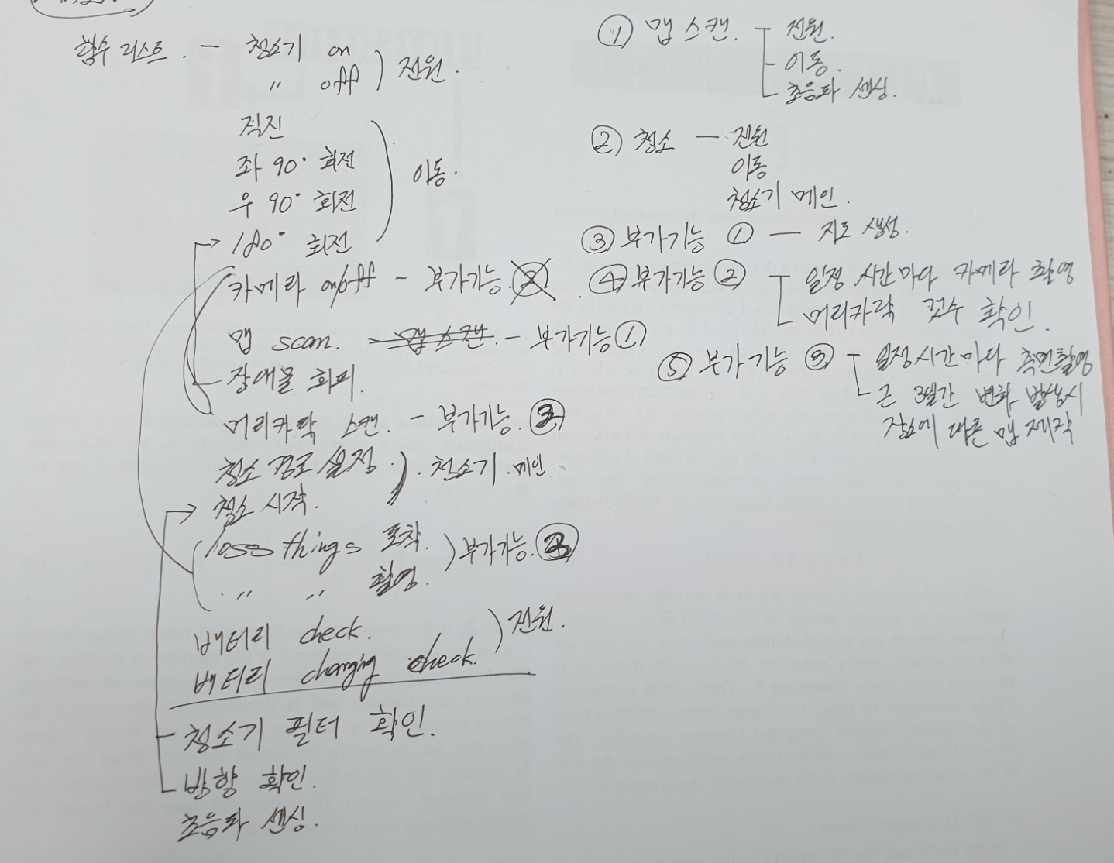 함수 리스트 - 청소기 on
〃 off ) 전원.
직진
좌 90° 회전
우 90° 회전
180° 회전
이동.
카메라 on/off - 부가기능
맵 scan. 맵 스캔. - 부가기능 ①
장애물 회피.
머리카락 스캔 - 부가기능.
청소 경로 설정 ). 청소기 메인.
청소 시작.
loss things 포착. ) 부가기능.
〃 〃 촬영.
배터리 check. ) 전원.
배터리 charging check.
청소기 필터 확인.
방향 확인.
초음파 센싱.
① 맵 스캔. - 전원.
이동.
초음파 센싱.
② 청소 - 전원
이동
청소기 메인.
③ 부가기능 ① - 지도 생성.
④ 부가기능 ② - 일정 시간마다 카메라 촬영
머리카락 갯수 확인.
⑤ 부가기능 ③ - 일정시간마다 측면촬영
근 3일간 변화 발생시
장소에 따른 맵 제작